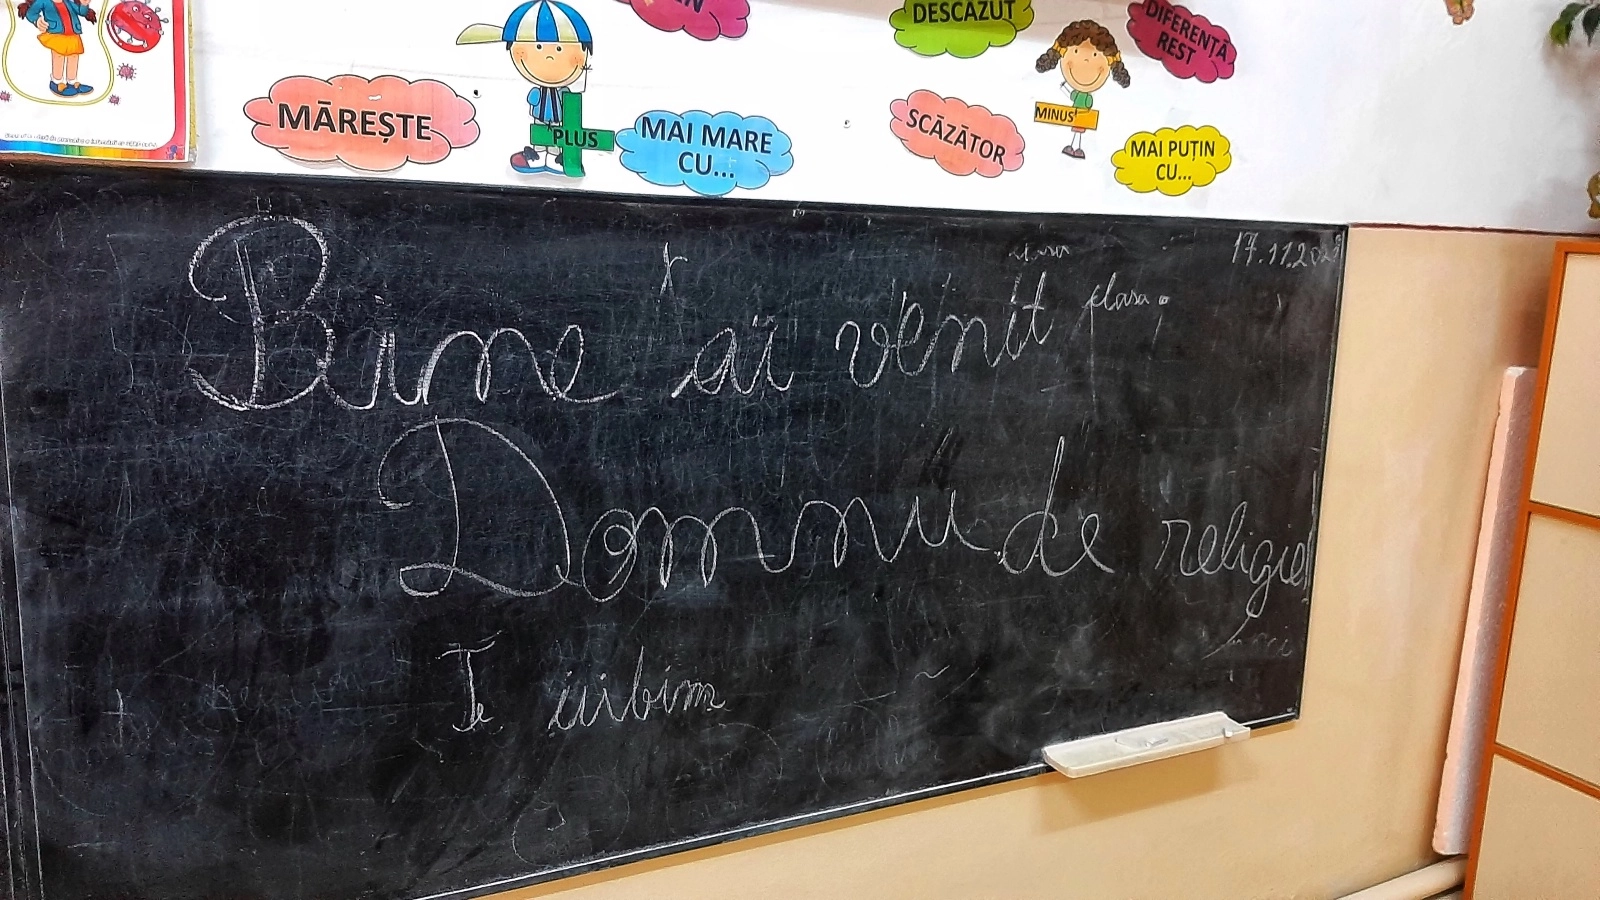 DESCĂZUT
DIFERENȚĂ
REST
MĂREȘTE
PLUS
MAI MARE
CU...
SCĂZĂTOR
MINUS
MAI PUȚIN
CU...
17.11.202
Bine ai venit
Domnu de religie
Te iubim